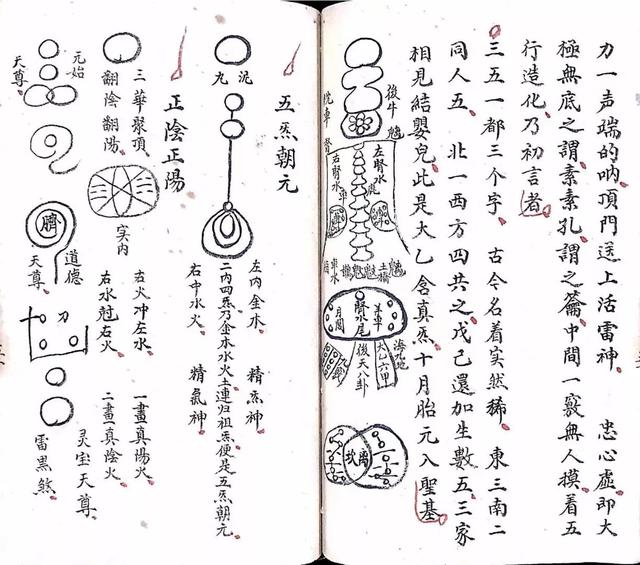 力一声端的呐頂門送上活雷神 忠心虛即大
極無底之謂素素孔謂之籥中間一竅無人摸着五
行造化乃初言者
三五一都三个字 古今名着实然稀 東三南二
同人五 北一西方四共之戊己還加生數五三家
相見結嬰兒此是大乙含真炁十月胎元入聖基
後斗
魁
左腎水
右腎水
腎水尾
月閂
後天八卦
六甲
坎離
五炁朝元
泥
九
左内金木 精炁神
二内四炁乃金木水火土連归祖炁便是五炁朝元
右中水火 精氣神
正陰正陽
三華聚頂
翻陰翻陽
实内
右火冲左水 一畫真陽火
右水尅右火 二畫真陰火
灵宝天尊
元始
天尊
臍
道德
天尊
刀
雷黑煞